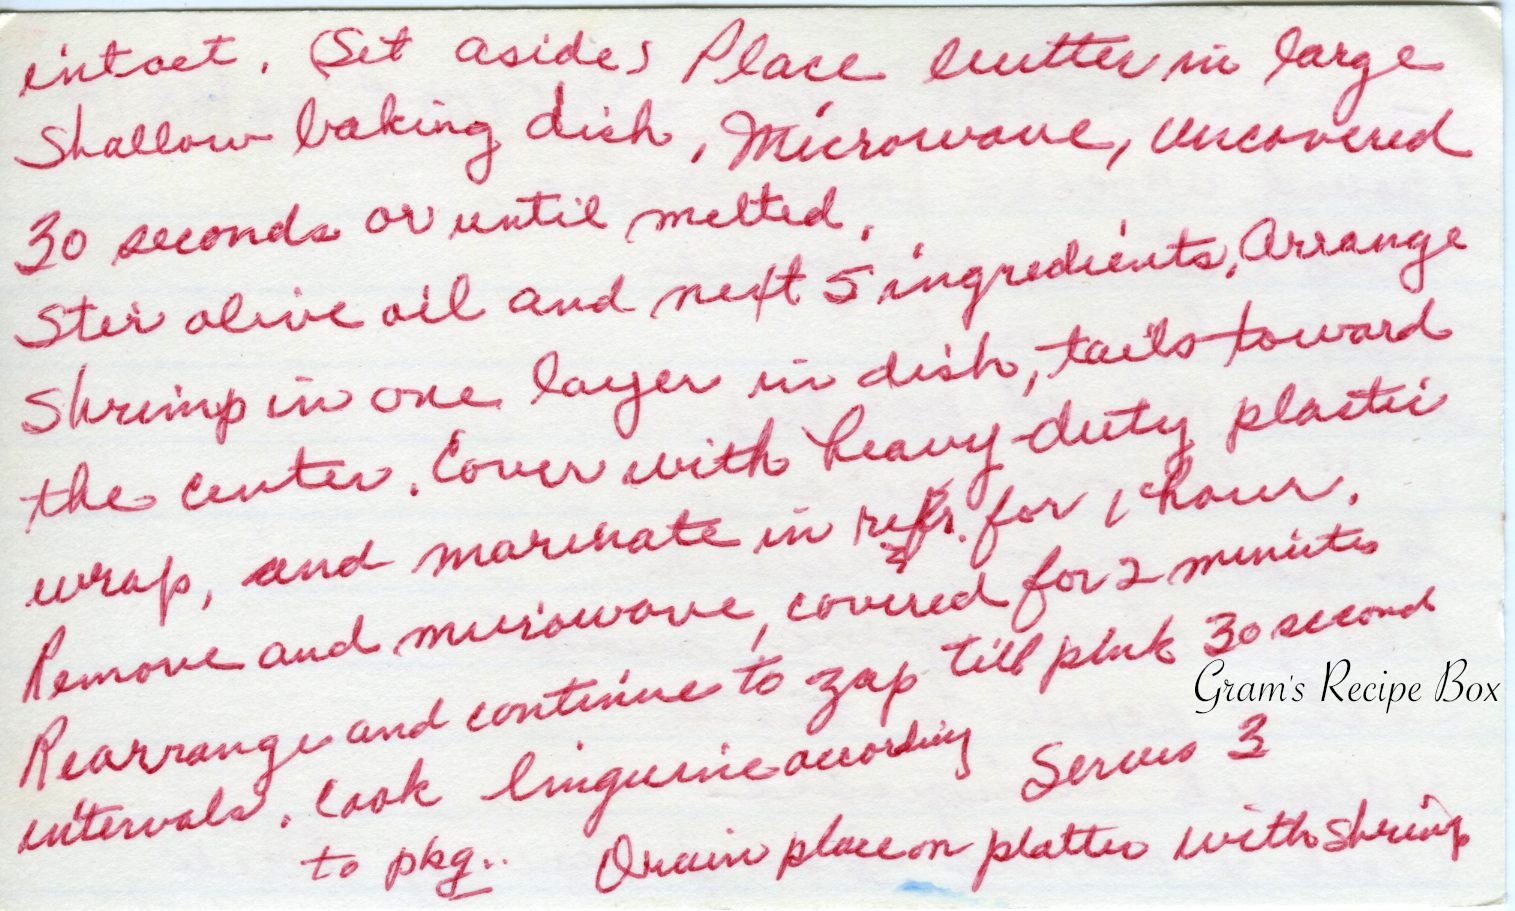 intact. (Set aside) Place butter in large
shallow baking dish. Microwave, uncovered
30 seconds or until melted.
Stir olive oil and next 5 ingredients. Arrange
shrimp in one layer in dish, tails toward
the center. Cover with heavy-duty plastic
wrap, and marinate in refr. for 1 hour.
Remove and microwave, covered for 2 minutes
Rearrange and continue to zap till pink 30 second
intervals. Cook linguine according
to pkg..
Serves 3
Drain place on platter with shrimp
Gram's Recipe Box